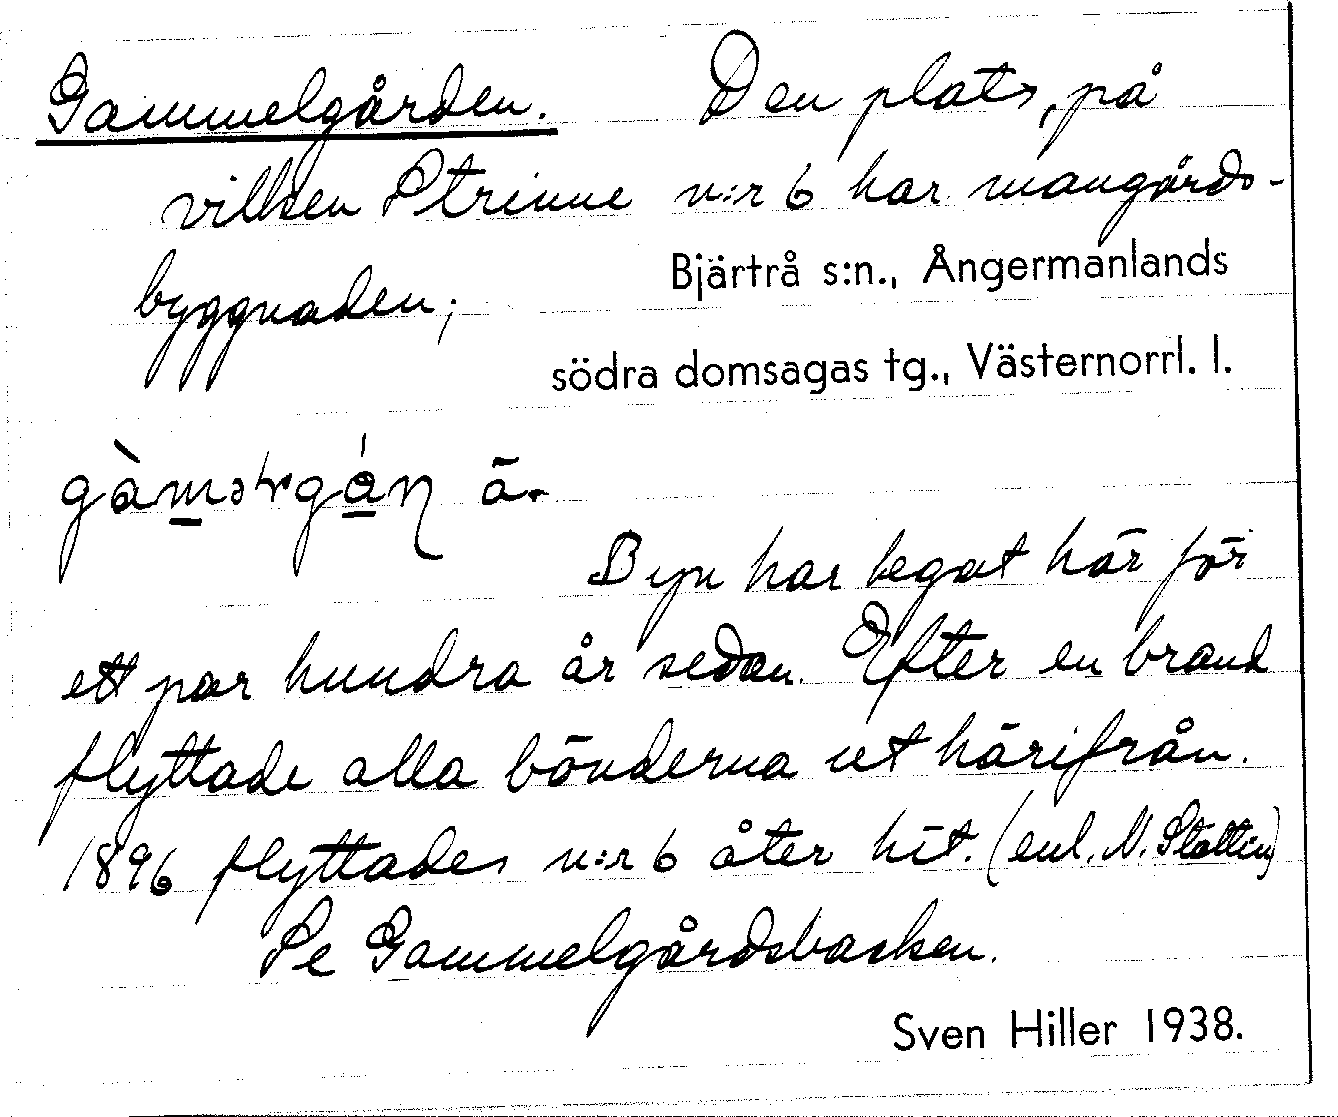 Gammelgården. Den plats, på
vilken Strinne n:r 6 har mangårds-
byggnaden;
Bjärtrå s:n., Ångermanlands
södra domsagas tg., Västernorrl. l.
ā.
Byn har legat här för
ett par hundra år sedan. Efter en brand
flyttade alla bönderna ut härifrån.
1896 flyttades n:r 6 åter hit. (enl. N. Stattin)
Se Gammelgårdsbacken.
Sven Hiller 1938.